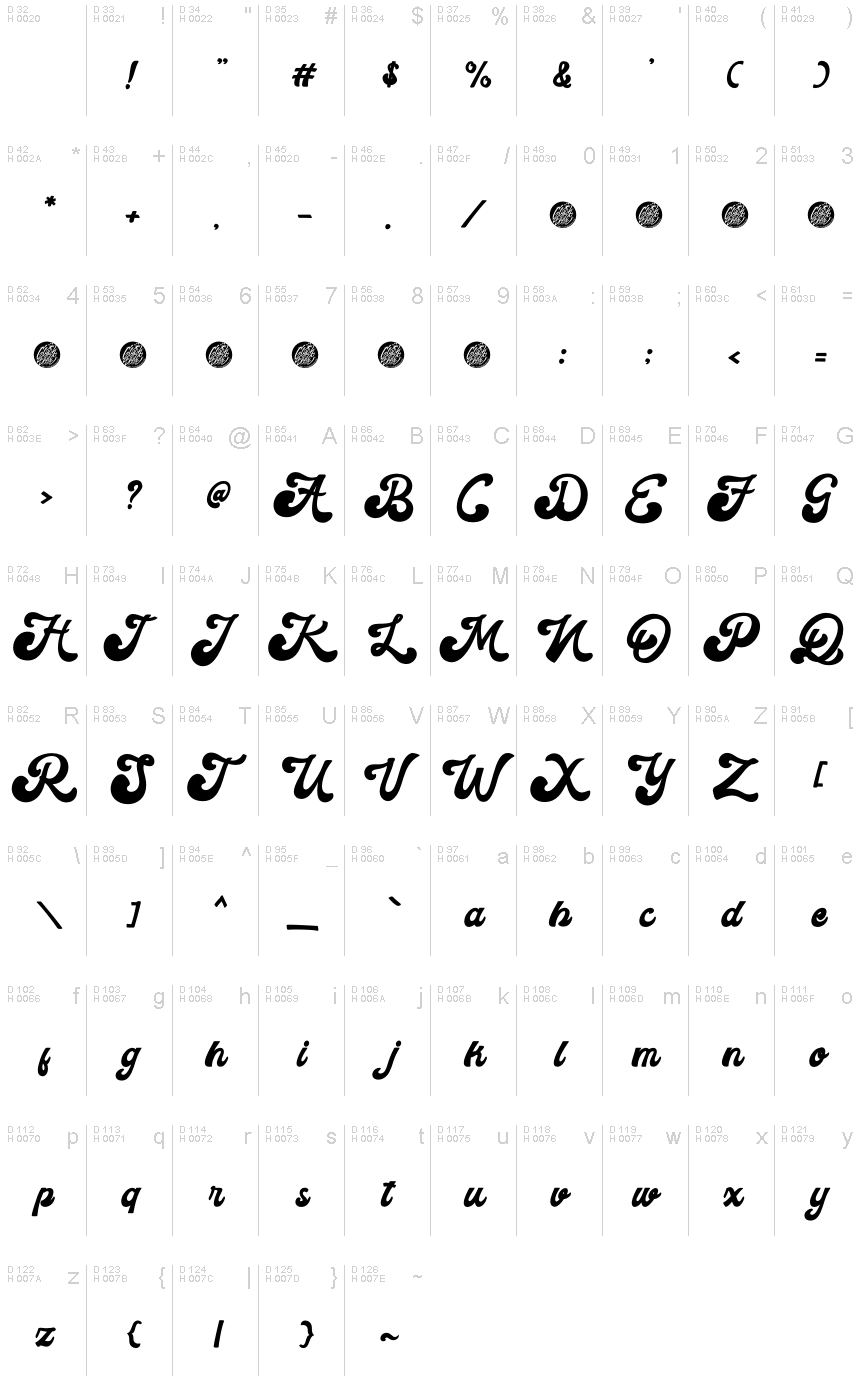 D 32 H 0020 D 33 H 0021 ! D 34 H 0022 " D 35 H 0023 # D 36 H 0024 $ D 37 H 0025 % D 38 H 0026 & D 39 H 0027 ' D 40 H 0028 ( D 41 H 0029 )
! " # $ % & ' ( )
D 42 H 002A * D 43 H 002B + D 44 H 002C , D 45 H 002D - D 46 H 002E . D 47 H 002F / D 48 H 0030 0 D 49 H 0031 1 D 50 H 0032 2 D 51 H 0033 3
* + , - . /
D 52 H 0034 4 D 53 H 0035 5 D 54 H 0036 6 D 55 H 0037 7 D 56 H 0038 8 D 57 H 0039 9 D 58 H 003A : D 59 H 003B ; D 60 H 003C < D 61 H 003D =
: ; < =
D 62 H 003E > D 63 H 003F ? D 64 H 0040 @ D 65 H 0041 A D 66 H 0042 B D 67 H 0043 C D 68 H 0044 D D 69 H 0045 E D 70 H 0046 F D 71 H 0047 G
> ? @ A B C D E F G
D 72 H 0048 H D 73 H 0049 I D 74 H 004A J D 75 H 004B K D 76 H 004C L D 77 H 004D M D 78 H 004E N D 79 H 004F O D 80 H 0050 P D 81 H 0051 Q
H I J K L M N O P Q
D 82 H 0052 R D 83 H 0053 S D 84 H 0054 T D 85 H 0055 U D 86 H 0056 V D 87 H 0057 W D 88 H 0058 X D 89 H 0059 Y D 90 H 005A Z D 91 H 005B [
R S T U V W X Y Z [
D 92 H 005C \ D 93 H 005D ] D 94 H 005E ^ D 95 H 005F _ D 96 H 0060 ` D 97 H 0061 a D 98 H 0062 b D 99 H 0063 c D 100 H 0064 d D 101 H 0065 e
\ ] ^ _ ` a b c d e
D 102 H 0066 f D 103 H 0067 g D 104 H 0068 h D 105 H 0069 i D 106 H 006A j D 107 H 006B k D 108 H 006C l D 109 H 006D m D 110 H 006E n D 111 H 006F o
f g h i j k l m n o
D 112 H 0070 p D 113 H 0071 q D 114 H 0072 r D 115 H 0073 s D 116 H 0074 t D 117 H 0075 u D 118 H 0076 v D 119 H 0077 w D 120 H 0078 x D 121 H 0079 y
p q r s t u v w x y
D 122 H 007A z D 123 H 007B { D 124 H 007C | D 125 H 007D } D 126 H 007E ~
z { | } ~